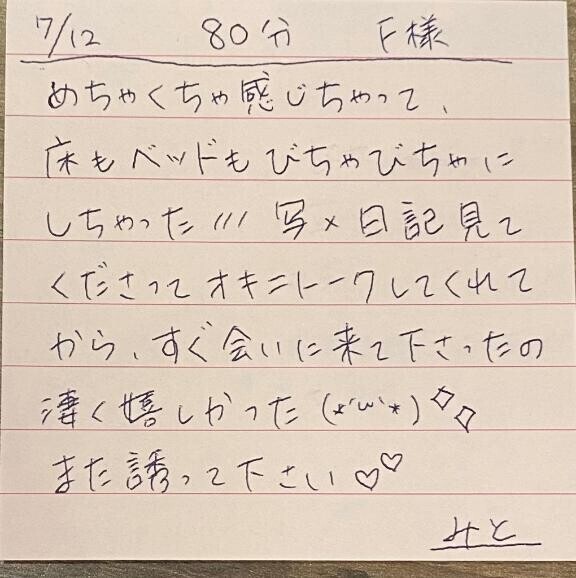 7/12 80分 F様
めちゃくちゃ感じちゃって、
床もベッドもびちゃびちゃに
しちゃった/// 写メ日記見て
くださってオキニトークしてくれて
から、すぐ会いに来て下さったの
凄く嬉しかった(*'ω'*)✧✧
また誘って下さい♡♡
みと